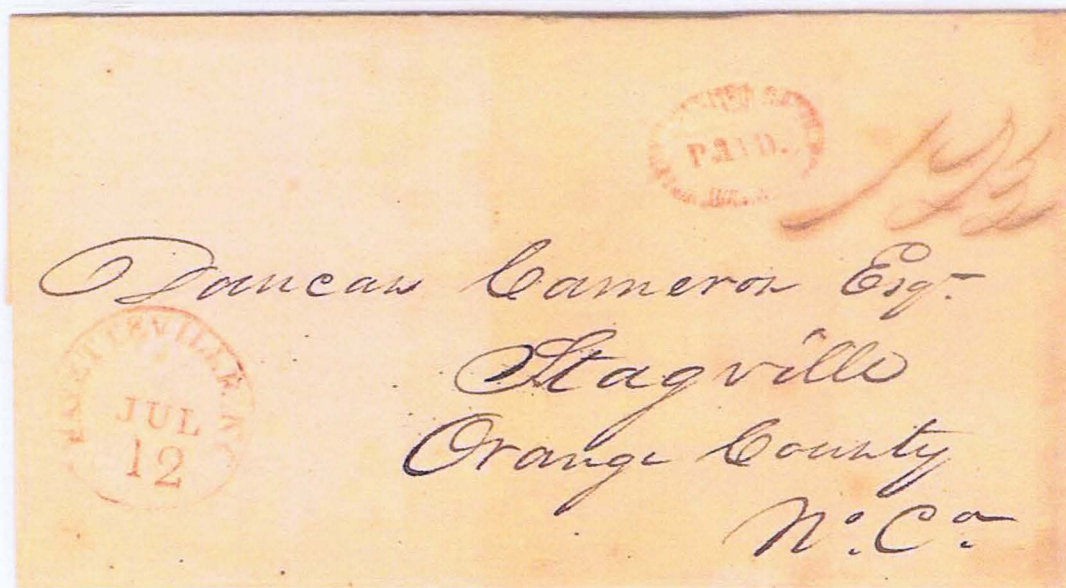 PAID.
Duncan Cameron Esqr.
Stagville
Orange County
No. Ca.
FAYETTEVILLE. N.C
JUL
12